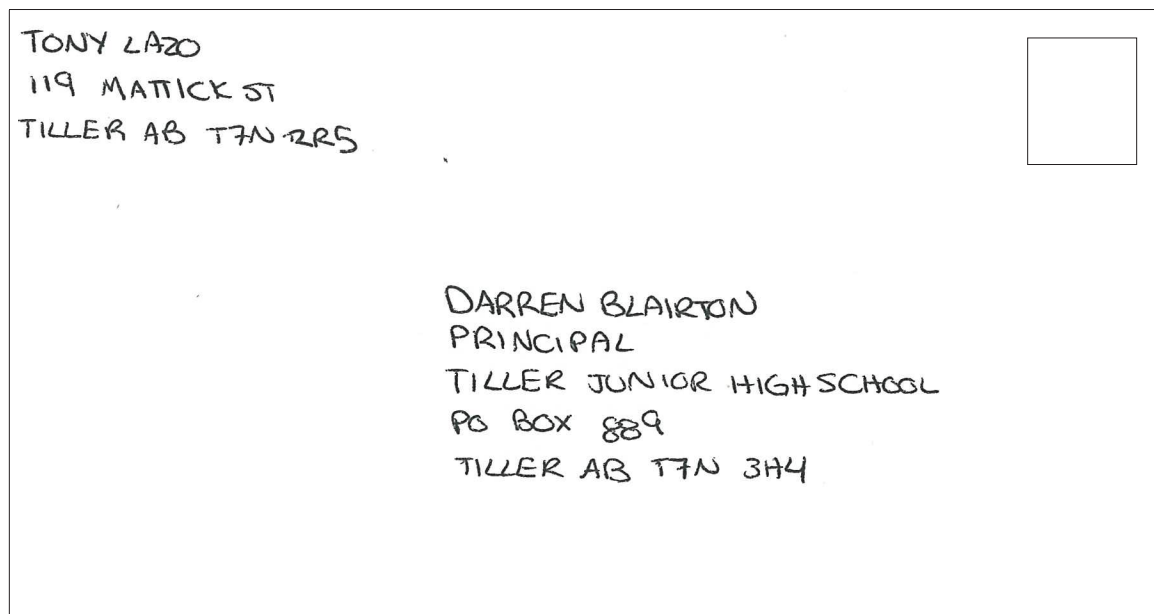 TONY LAZO
119 MATTICK ST
TILLER AB T7N 2R5
DARREN BLAIRTON
PRINCIPAL
TILLER JUNIOR HIGH SCHOOL
PO BOX 889
TILLER AB T7N 3H4